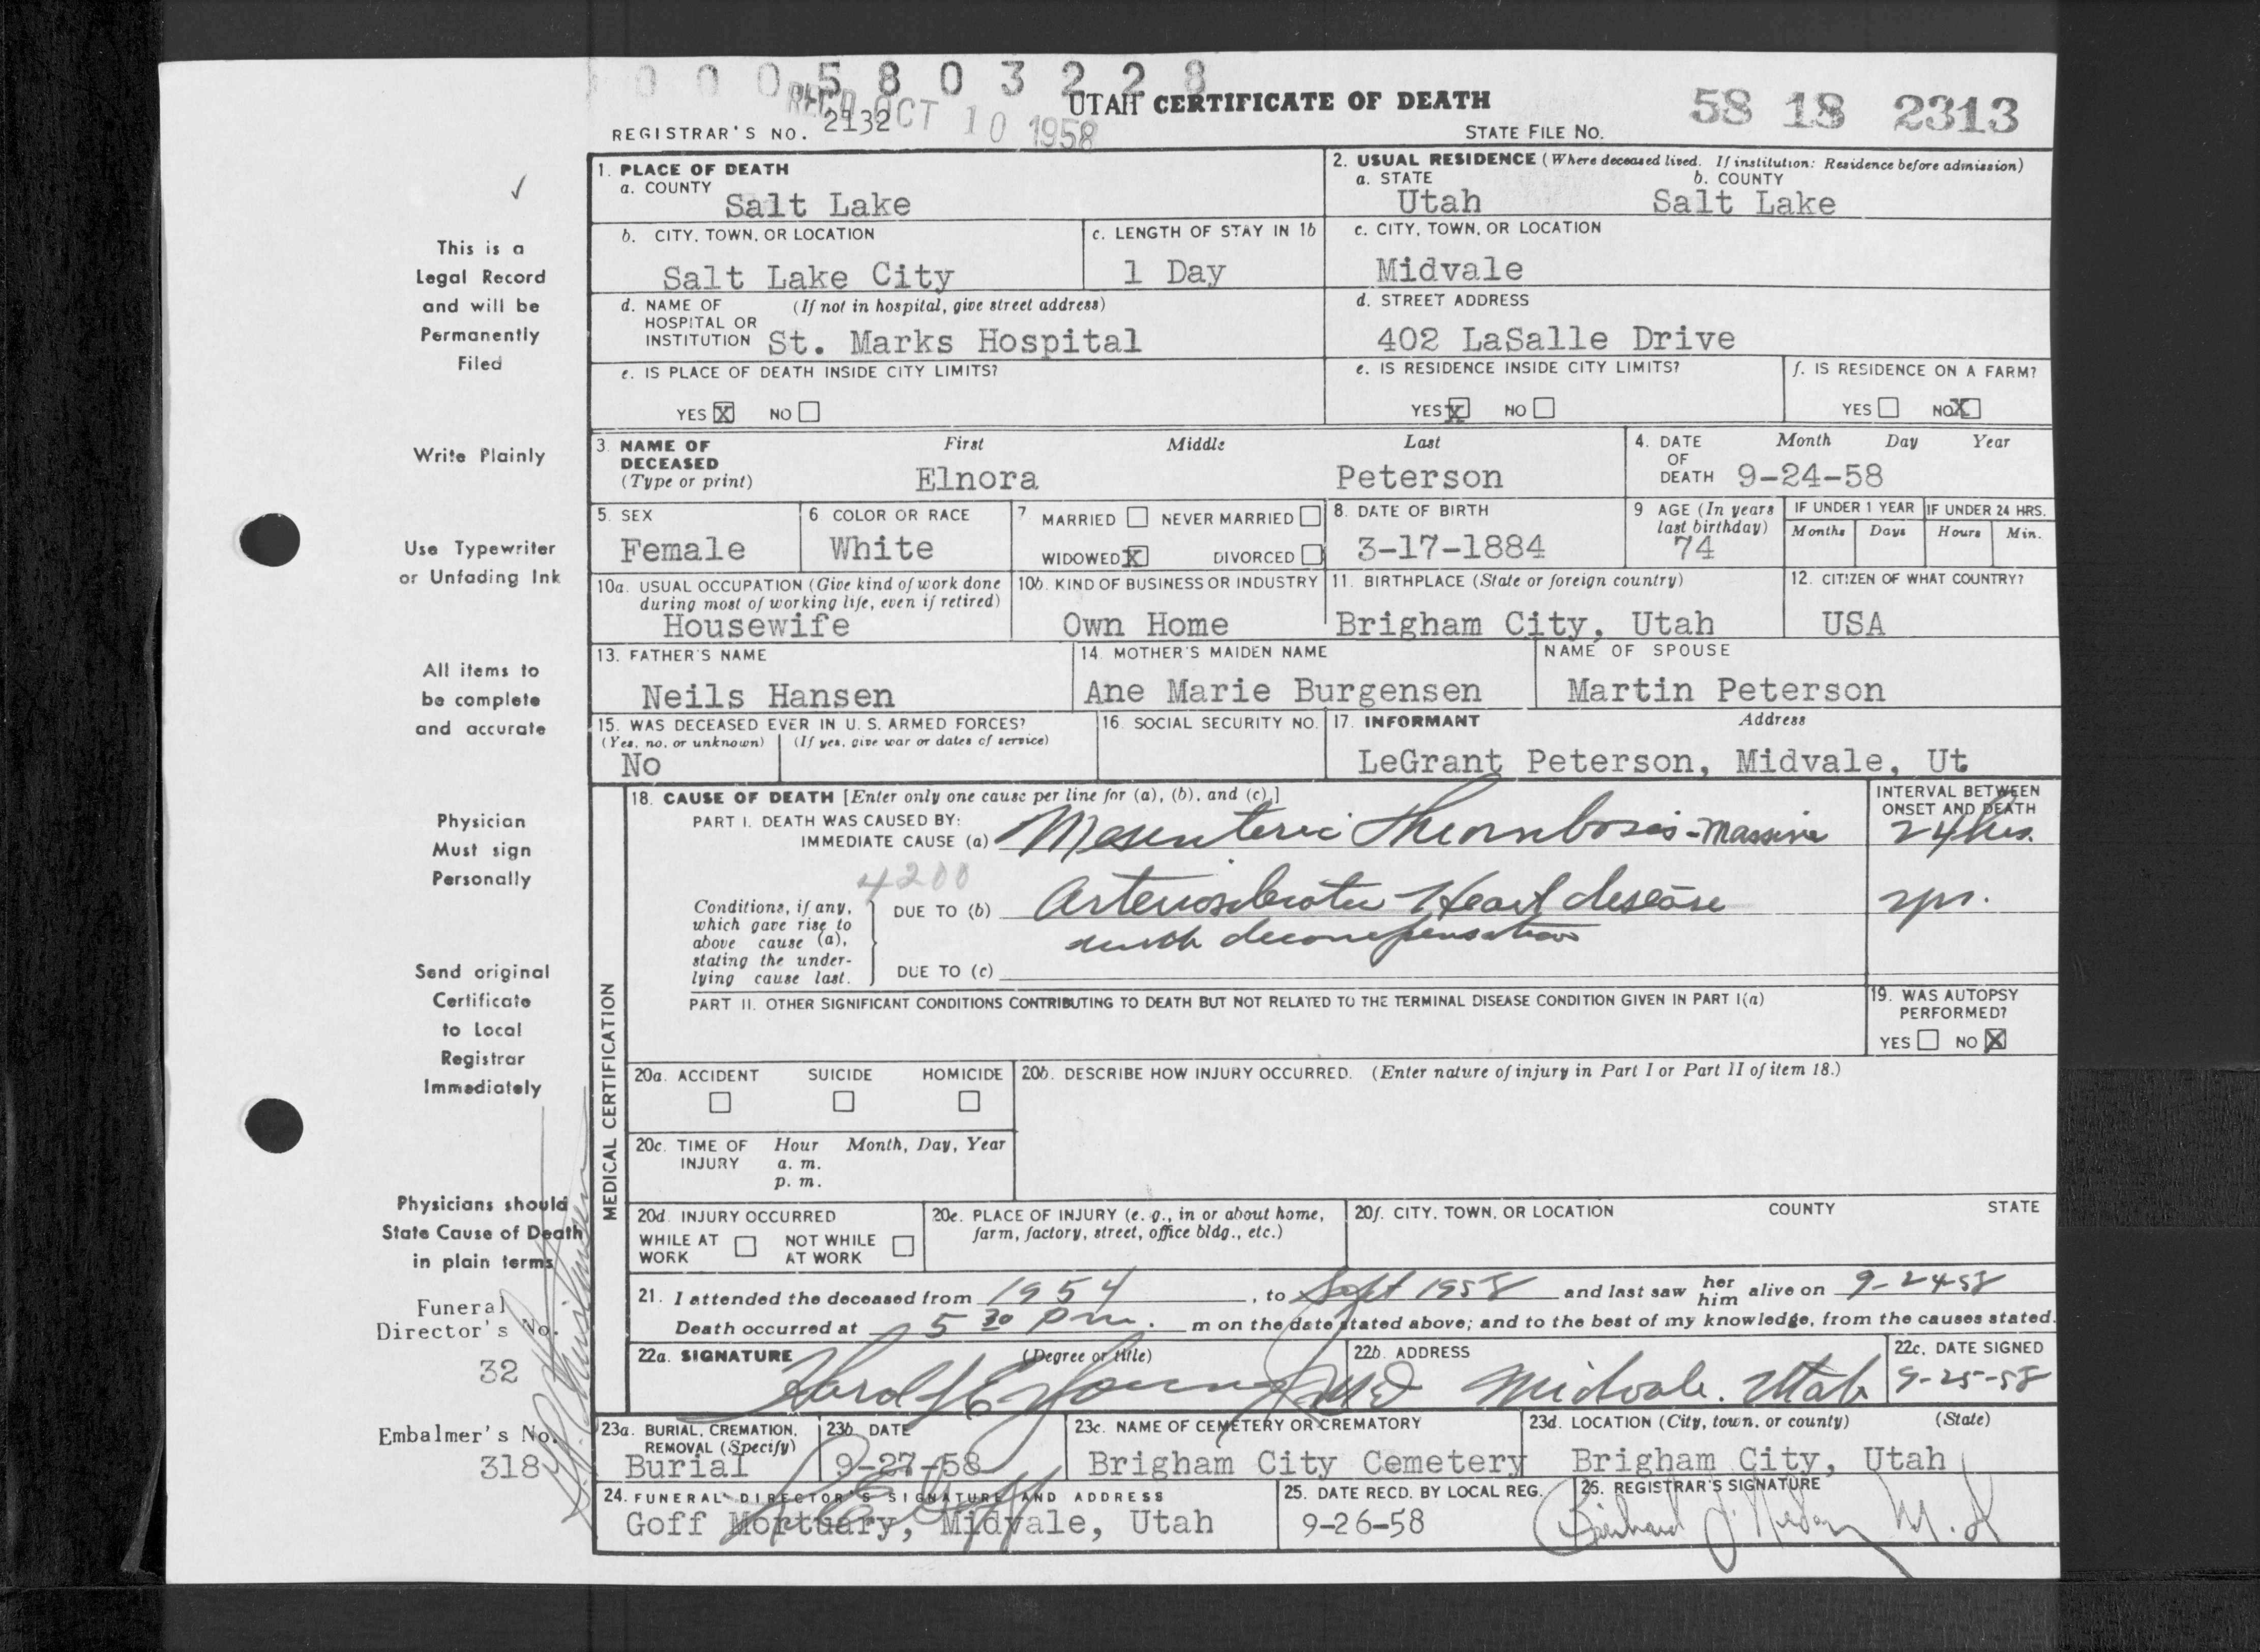 0 0 0 5 8 0 3 2 2 8
REC'D OCT 10 1958
UTAH CERTIFICATE OF DEATH
58 18 2313
REGISTRAR'S NO. 2132
STATE FILE NO.
✓
This is a
Legal Record
and will be
Permanently
Filed
Write Plainly
Use Typewriter
or Unfading Ink
All items to
be complete
and accurate
Physician
Must sign
Personally
Send original
Certificate
to Local
Registrar
Immediately
Physicians should
State Cause of Death
in plain terms
Funeral
Director's No.
32
Embalmer's No.
318
1. PLACE OF DEATH
a. COUNTY
Salt Lake
2. USUAL RESIDENCE (Where deceased lived. If institution: Residence before admission)
a. STATE b. COUNTY
Utah Salt Lake
b. CITY, TOWN, OR LOCATION
Salt Lake City
c. LENGTH OF STAY IN 1b
1 Day
c. CITY, TOWN, OR LOCATION
Midvale
d. NAME OF (If not in hospital, give street address)
HOSPITAL OR
INSTITUTION St. Marks Hospital
d. STREET ADDRESS
402 LaSalle Drive
e. IS PLACE OF DEATH INSIDE CITY LIMITS?
YES X NO
e. IS RESIDENCE INSIDE CITY LIMITS?
YES X NO
f. IS RESIDENCE ON A FARM?
YES NO X
3. NAME OF First Middle Last
DECEASED
(Type or print) Elnora Peterson
4. DATE Month Day Year
OF
DEATH 9-24-58
5. SEX
Female
6. COLOR OR RACE
White
7 MARRIED NEVER MARRIED
WIDOWED X DIVORCED
8. DATE OF BIRTH
3-17-1884
9 AGE (In years
last birthday)
74
IF UNDER 1 YEAR IF UNDER 24 HRS.
Months Days Hours Min.
10a. USUAL OCCUPATION (Give kind of work done
during most of working life, even if retired)
Housewife
10b. KIND OF BUSINESS OR INDUSTRY
Own Home
11. BIRTHPLACE (State or foreign country)
Brigham City, Utah
12. CITIZEN OF WHAT COUNTRY?
USA
13. FATHER'S NAME
Neils Hansen
14. MOTHER'S MAIDEN NAME
Ane Marie Burgensen
NAME OF SPOUSE
Martin Peterson
15. WAS DECEASED EVER IN U. S. ARMED FORCES?
(Yes, no, or unknown) (If yes, give war or dates of service)
No
16. SOCIAL SECURITY NO.
17. INFORMANT Address
LeGrant Peterson, Midvale, Ut
MEDICAL CERTIFICATION
18. CAUSE OF DEATH [Enter only one cause per line for (a), (b), and (c).]
PART I. DEATH WAS CAUSED BY:
IMMEDIATE CAUSE (a) Mesenteric Thrombosis - Massive
INTERVAL BETWEEN
ONSET AND DEATH
24 hrs.
4200
Conditions, if any,
which gave rise to
above cause (a),
stating the under-
lying cause last.
DUE TO (b) Arteriosclerotic Heart disease
yrs.
with decompensation
DUE TO (c)
PART II. OTHER SIGNIFICANT CONDITIONS CONTRIBUTING TO DEATH BUT NOT RELATED TO THE TERMINAL DISEASE CONDITION GIVEN IN PART I(a)
19. WAS AUTOPSY
PERFORMED?
YES NO X
20a. ACCIDENT SUICIDE HOMICIDE
20b. DESCRIBE HOW INJURY OCCURRED. (Enter nature of injury in Part I or Part II of item 18.)
20c. TIME OF Hour Month, Day, Year
INJURY a. m.
p. m.
20d. INJURY OCCURRED
WHILE AT NOT WHILE
WORK AT WORK
20e. PLACE OF INJURY (e. g., in or about home,
farm, factory, street, office bldg., etc.)
20f. CITY, TOWN, OR LOCATION COUNTY STATE
21. I attended the deceased from 1954, to Sept 1958 and last saw her him alive on 9-24-58
Death occurred at 5 30 Pm. m on the date stated above; and to the best of my knowledge, from the causes stated.
22a. SIGNATURE (Degree or title)
Harold E Young MD
22b. ADDRESS
Midvale. Utah
22c. DATE SIGNED
9-25-58
23a. BURIAL, CREMATION,
REMOVAL (Specify)
Burial
23b. DATE
9-27-58
23c. NAME OF CEMETERY OR CREMATORY
Brigham City Cemetery
23d. LOCATION (City, town, or county) (State)
Brigham City, Utah
24. FUNERAL DIRECTOR'S SIGNATURE AND ADDRESS
Goff Mortuary, Midvale, Utah
25. DATE RECD. BY LOCAL REG.
9-26-58
26. REGISTRAR'S SIGNATURE
M. D